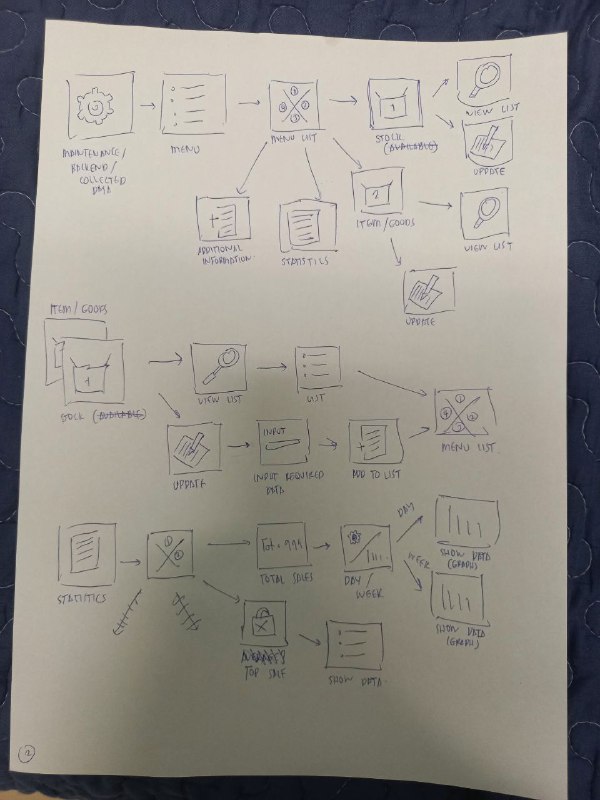 MAINTENANCE/
BACKEND/
COLLECTED
DATA
MENU
1
2
3
4
MENU LIST
1
STOCK
(AVAILABLE)
VIEW LIST
UPDATE
ADDITIONAL
INFORMATION
STATISTICS
2
ITEM/GOODS
VIEW LIST
UPDATE
ITEM/GOODS
1
STOCK (AVAILABLE)
VIEW LIST
LIST
UPDATE
INPUT
INPUT REQUIRED
DATA
ADD TO LIST
1
2
3
4
MENU LIST
STATISTICS
1
2
TOTAL SALES
DAY
/
WEEK
DAY
WEEK
SHOW DATA
(GRAPH)
SHOW DATA
(GRAPH)
TOP SALE
SHOW DATA
2